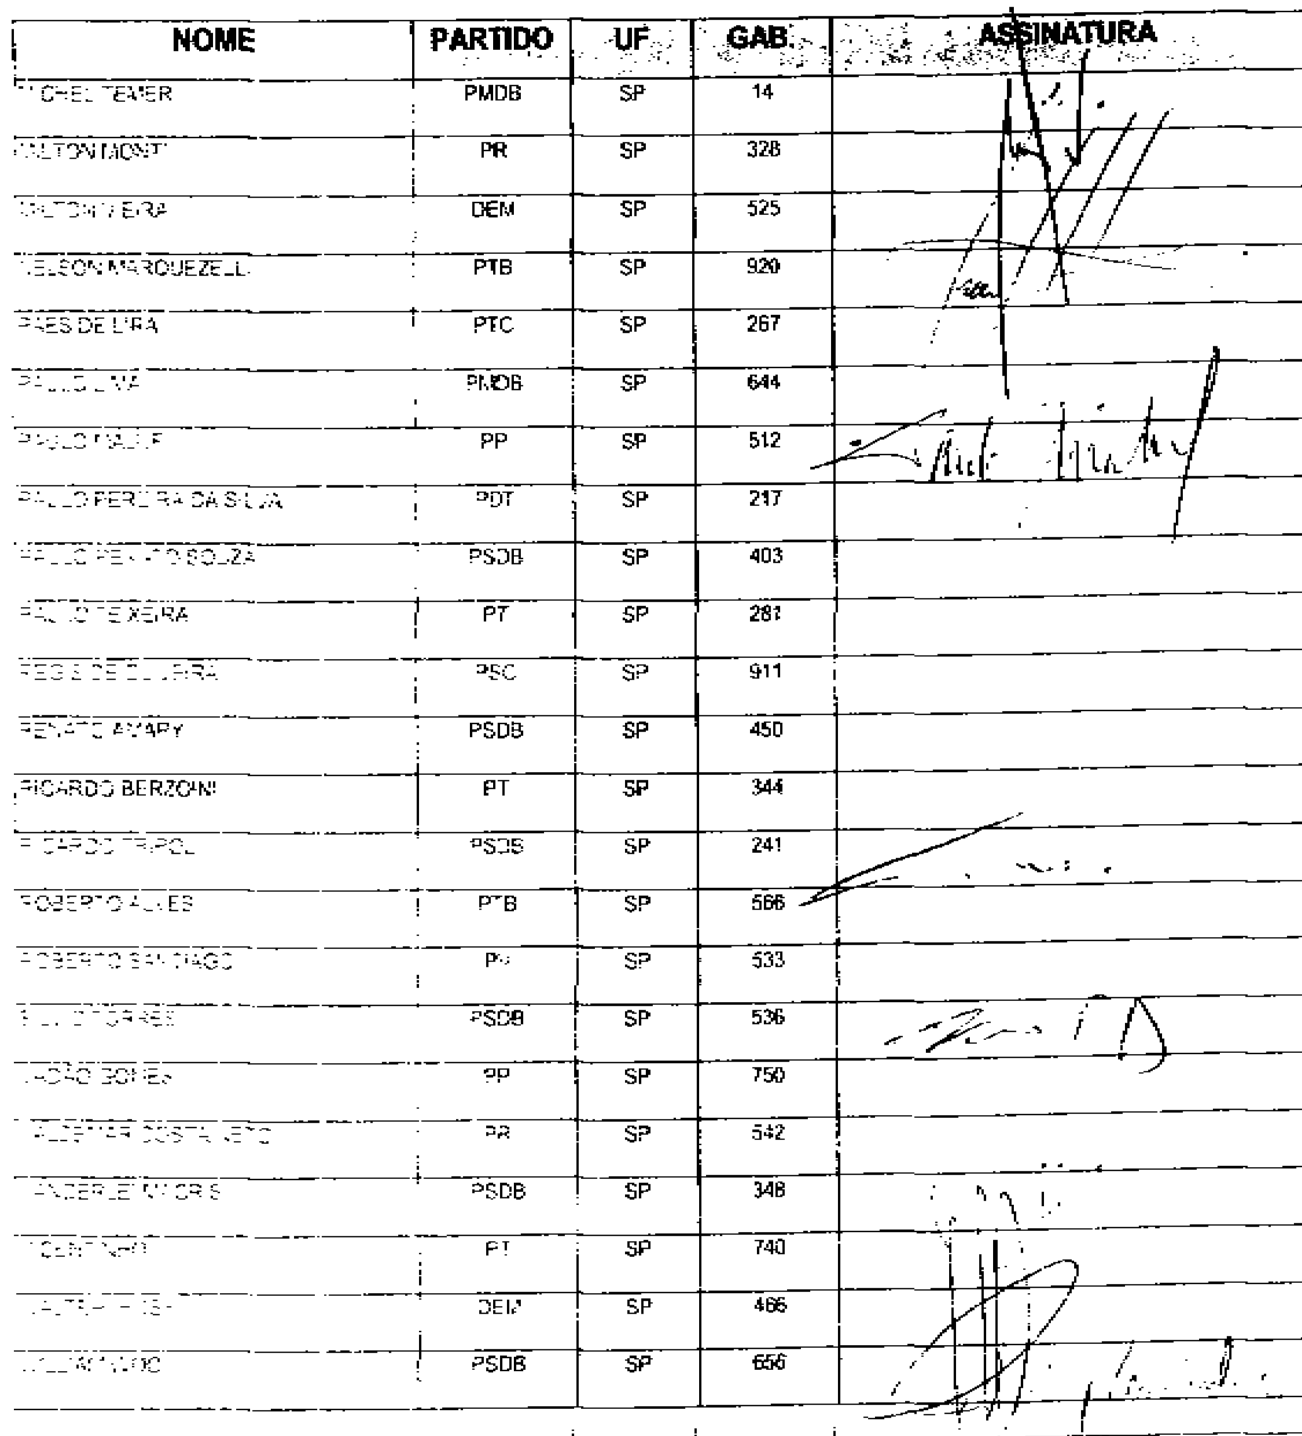 NOME PARTIDO UF GAB. ASSINATURA
MICHEL TEMER PMDB SP 14
MILTON MONTI PR SP 328
MILTON VIEIRA DEM SP 525
NELSON MARQUEZELLI PTB SP 920
PAES DE LIRA PTC SP 267
PAULO LIMA PMDB SP 644
PAULO MALUF PP SP 512
PAULO PEREIRA DA SILVA PDT SP 217
PAULO RENATO SOUZA PSDB SP 403
PAULO TEIXEIRA PT SP 281
REGIS DE OLIVEIRA PSC SP 911
RENATO AMARY PSDB SP 450
RICARDO BERZOINI PT SP 344
RICARDO TRIPOLI PSDB SP 241
ROBERTO ALVES PTB SP 566
ROBERTO SANTIAGO PV SP 533
SILVIO TORRES PSDB SP 536
VADÃO GOMES PP SP 750
VALDEMAR COSTA NETO PR SP 542
VANDERLEI MACRIS PSDB SP 348
VICENTINHO PT SP 740
WALTER IHOSHI DEM SP 466
PSDB SP 656